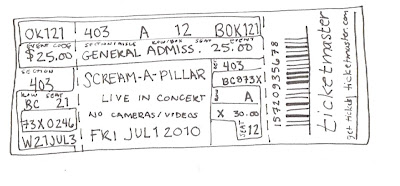 OK121 403 A 12 BOK121
EVENT CODE SECTION/AISLE ROW/BOX SEAT EVENT
$25.00 GENERAL ADMISS. 25.00
SECTION
403
ROW SEAT
BC 21
73X0246
W21JUL3
SCREAM-A-PILLAR
LIVE IN CONCERT
NO CAMERAS/VIDEOS
FRI JUL 1 2010
403
BC873X
A
X 30.00
SEAT 12
1572093S678
ticketmaster
get tickets | ticketmaster.com